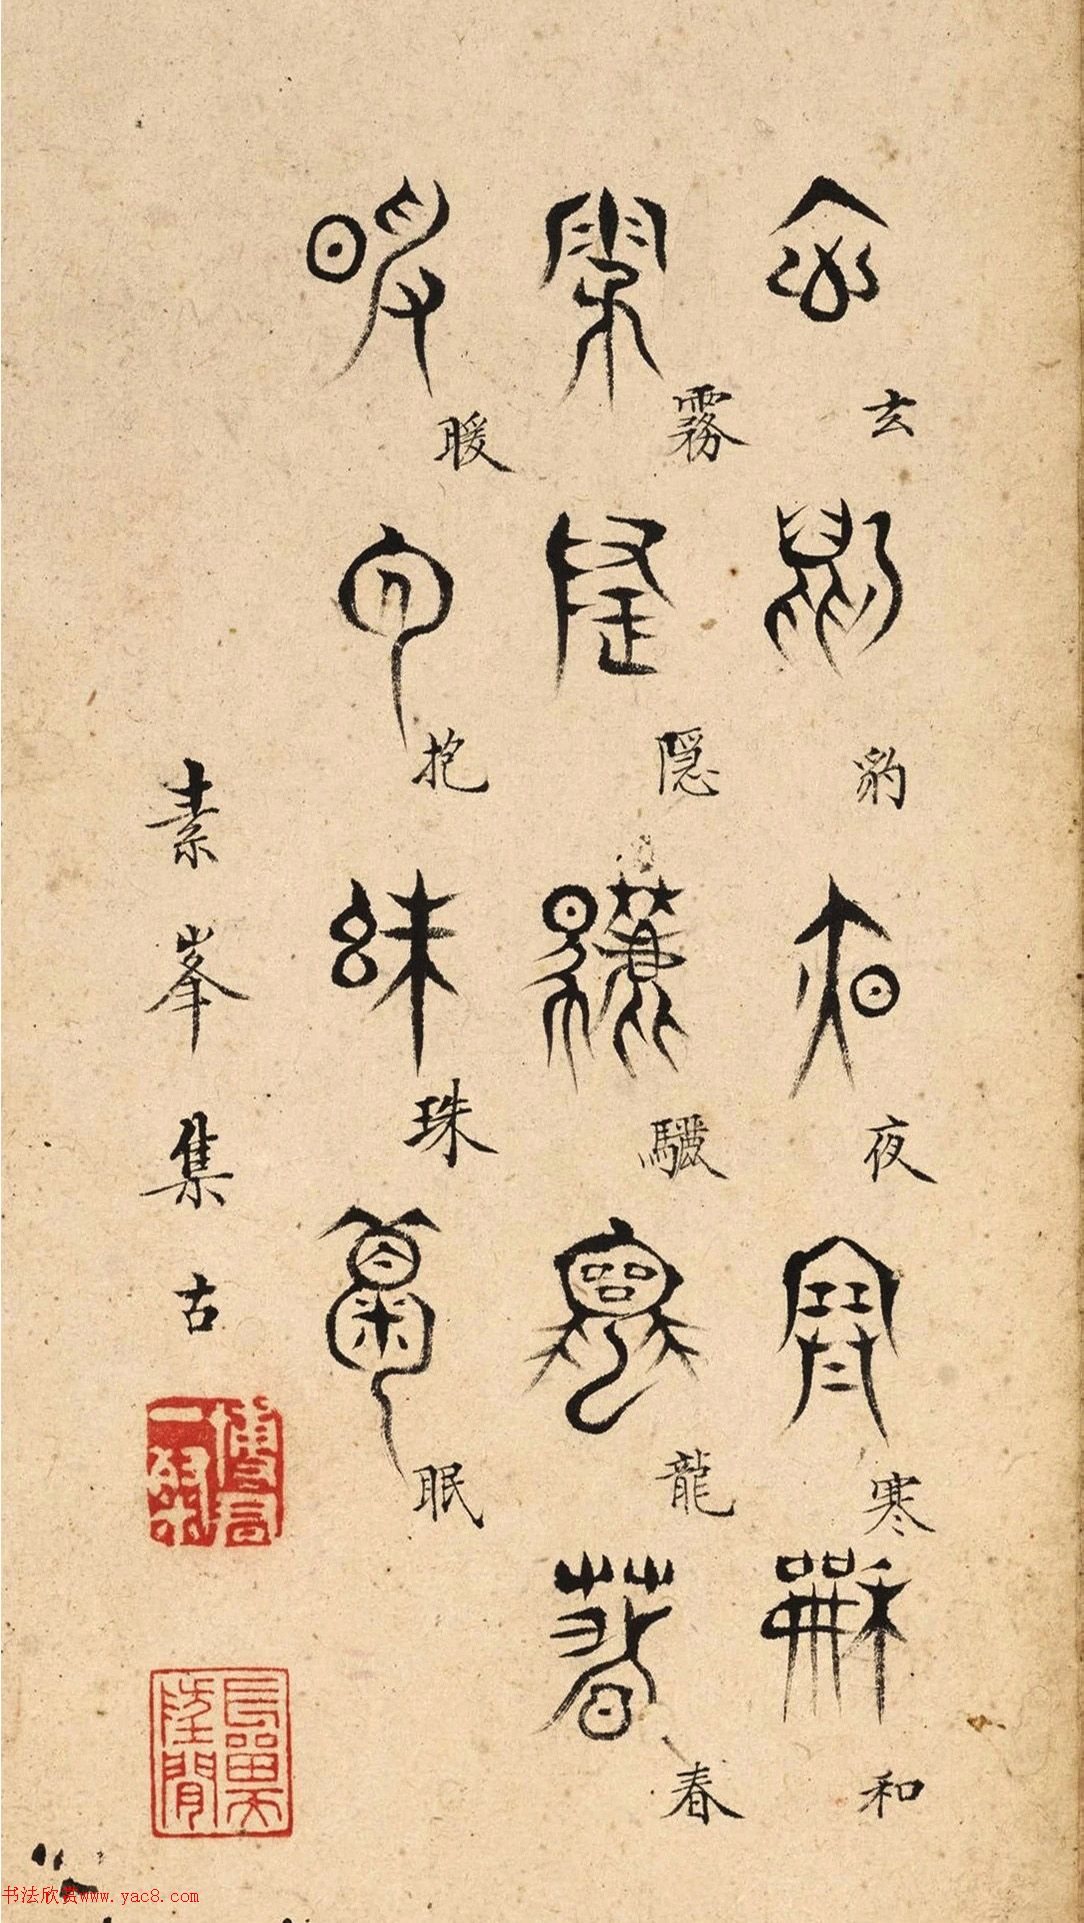 玄豹夜寒和
霧隠驪龍春
暖抱珠眠
素峯集古
书法欣赏www.yac8.com